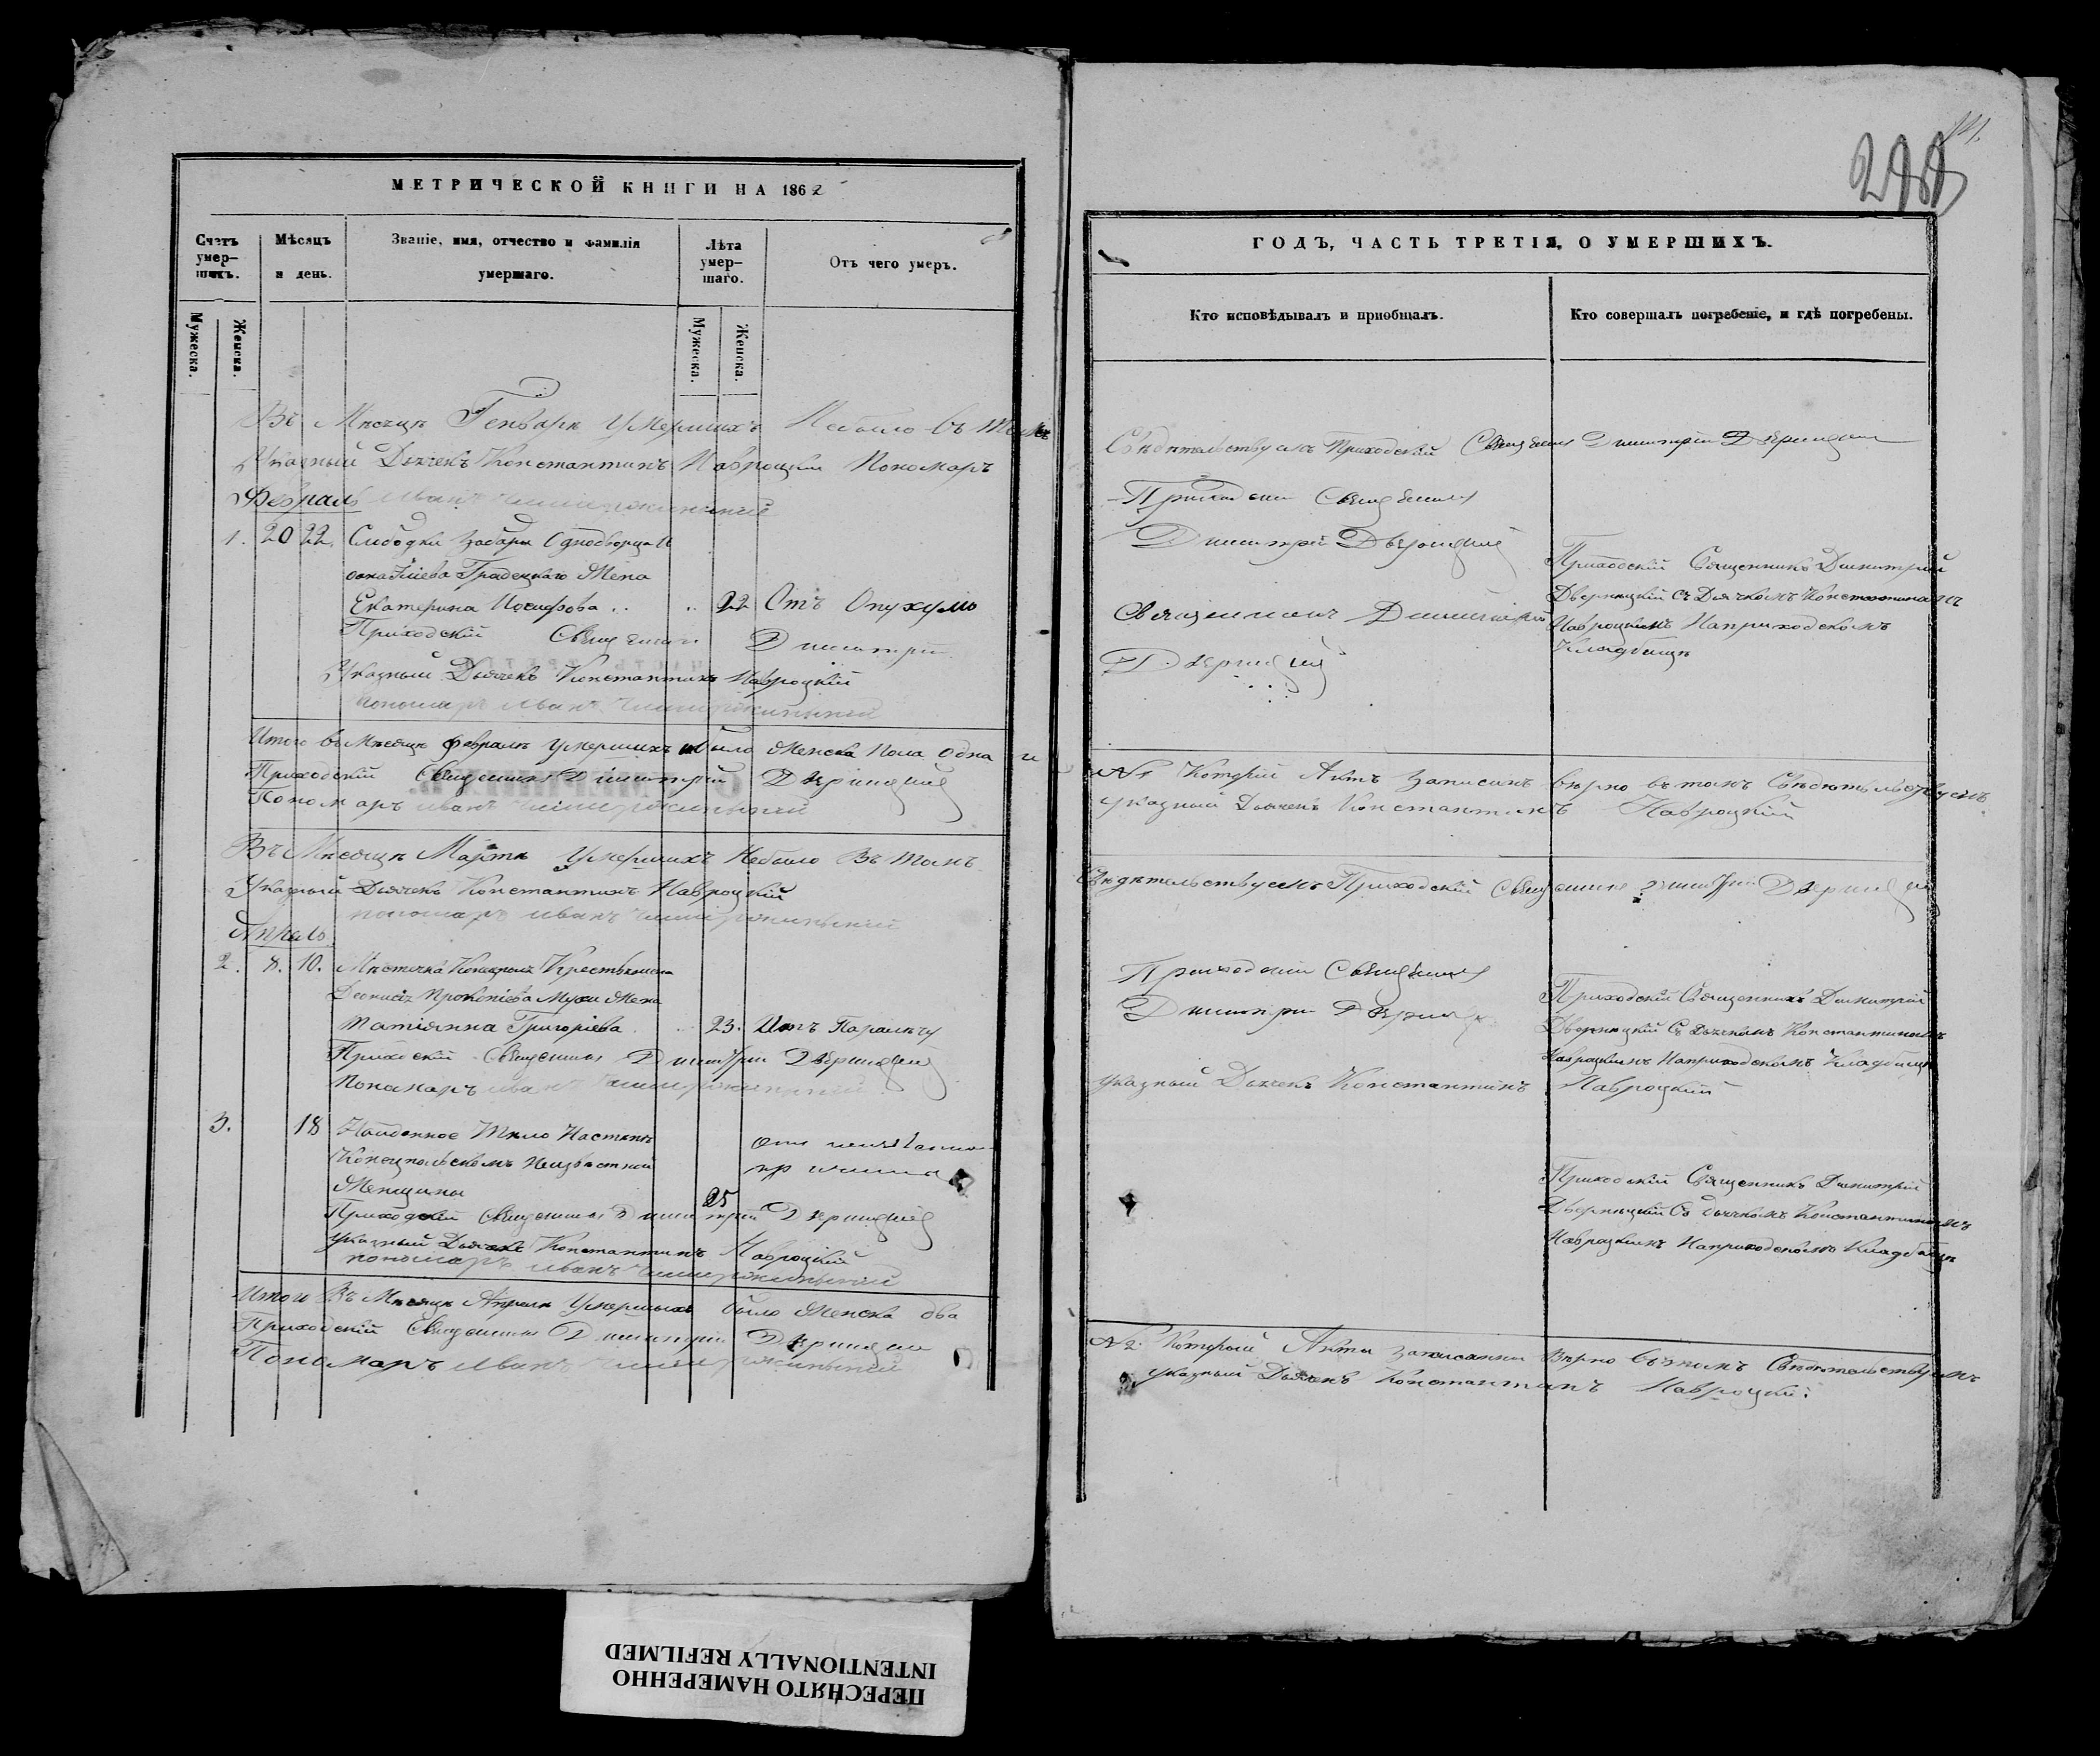 МЕТРИЧЕСКОЙ КНИГИ НА 1862
Счетъ умер-шихъ.
Мѣсяцъ и день.
Званіе, имя, отчество и фамилія умершаго.
Лѣта умер-шаго.
Отъ чего умеръ.
Мужеска.
Женска.
Мужеска.
Женска.
Въ Мѣсяцѣ Генварѣ Умершихъ Небыло въ томъ
Указный Дьячекъ Константинъ Навроцкій Пономаръ
Февраль Иванъ
1. 20 22. Слободки Забары Однодворца
Градецкаго Жена
Екатерина Иосифова 22 Отъ Опухулю
Приходскій Священникъ Димитрій
Указный Дьячекъ Константинъ Навроцкій
пономаръ Иванъ
Итого въ Мѣсяцѣ февралѣ Умершихъ было Женска Пола одна и
Приходскій Священникъ Димитрій Дверницкій
Пономаръ Иванъ
Въ Мѣсяцѣ Мартѣ Умершихъ Небыло Въ томъ
Указный Дьячекъ Константинъ Навроцкій
пономаръ Иванъ
Апрѣль
2. 8. 10. Мѣстечка Концеполя Крестьянина
Деонисія Прокопіева Мухи Жена
Матіянна Григоріева 23. Отъ Параличу
Приходскій Священникъ Димитрій Дверницкій
Пономаръ Иванъ
3. 18 Найденное Тѣло Настепѣ
Конецпольскомъ Неизвѣстной
Женщины 25
Приходскій Священникъ Димитрій Дверницкій
Указный Дьячекъ Константинъ Навроцкій
пономаръ Иванъ
Итого Въ Мѣсяцѣ Апрѣлѣ Умершихъ было Женска два
Приходскій Священникъ Димитрій Дверницкій
Пономаръ Иванъ
ГОДЪ, ЧАСТЬ ТРЕТІЯ, О УМЕРШИХЪ.
Кто исповѣдывалъ и приобщалъ.
Кто совершалъ погребеніе, и гдѣ погребены.
Свѣдѣтельствуемъ Приходскій Священникъ Димитрій Дверницкій
Приходскій Священникъ
Димитрій Дверницкій
Священникъ Димитрій
Дверницкій
Приходскій Священникъ Димитрій
Дверницкій съ Дьячкомъ Константиномъ
Навроцкимъ Наприходскомъ
Кладбищѣ
№ 1 Которій Актъ Записанъ вѣрно въ томъ Свѣдѣтельствуемъ
указный Дьячекъ Константинъ Навроцкій
Свѣдѣтельствуемъ Приходскій Священникъ Димитрій Дверницкій
Приходскій Священникъ
Димитрій Дверницкій
Приходскій Священникъ Димитрій
Дверницкій Съ Дьячкомъ Константиномъ
Навроцкимъ Наприходскомъ Кладбищѣ
указный Дьячекъ Константинъ Навроцкій
Приходскій Священникъ Димитрій
Дверницкій Съ дьячкомъ Константиномъ
Навроцкимъ Наприходскомъ Кладбищѣ
№ 2. Которыи Акты Записанны Вѣрно въ томъ Свѣдѣтельствуемъ
указный Дьячекъ Константинъ Навроцкій.
ПЕРЕСНЯТО НАМЕРЕННО
INTENTIONALLY REFILMED